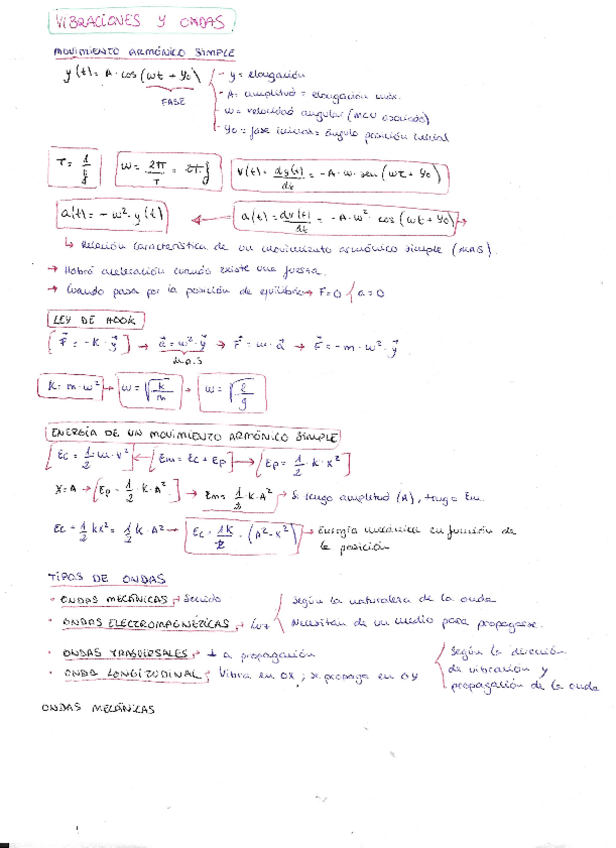 VIBRACIONES Y ONDAS
MOVIMIENTO ARMÓNICO SIMPLE
y(t) = A · cos (ωt + y₀)
FASE
- y = elongación
- A = amplitud = elongación máx.
- ω = velocidad angular (MCU asociado)
- y₀ = fase inicial = ángulo posición inicial
T = 1/f
ω = 2π/T = 2π·f
v(t) = dy(t)/dt = -A·ω·sen (ωt + y₀)
a(t) = -ω²·y(t) ← a(t) = dv(t)/dt = -A·ω² cos (ωt + y₀) →
↳ Relación característica de un movimiento armónico simple (MAS).
→ Habrá aceleración cuando existe una fuerza.
→ Cuando pasa por la posición de equilibrio → F=0 / a=0
LEY DE HOOK
[F = -K·y] → a = ω²·y → F = m·a → F = -m·ω²·y
M.A.S
K = m·ω² → ω = √K/m → ω = √l/g
ENERGÍA DE UN MOVIMIENTO ARMÓNICO SIMPLE
[Ec = 1/2·m·v²] ← [Em = Ec + Ep] → [Ep = 1/2·K·x²]
x=A → [Ep = 1/2·K·A²] → Em = 1/2·K·A² → Si tengo amplitud (A), tengo Em.
Ec + 1/2 kx² = 1/2 K·A² → Ec = 1K/2 · (A²-x²) → Energía mecánica en función de
la posición
TIPOS DE ONDAS
· ONDAS MECÁNICAS → Sonido
Según la naturaleza de la onda
· ONDAS ELECTROMAGNÉTICAS → Luz
Necesitan de un medio para propagarse.
· ONDAS TRASVERSALES → ⊥ a propagación
· ONDA LONGITUDINAL → Vibra en OX ; se propaga en OY
Según la dirección
de vibración y
propagación de la onda
ONDAS MECÁNICAS